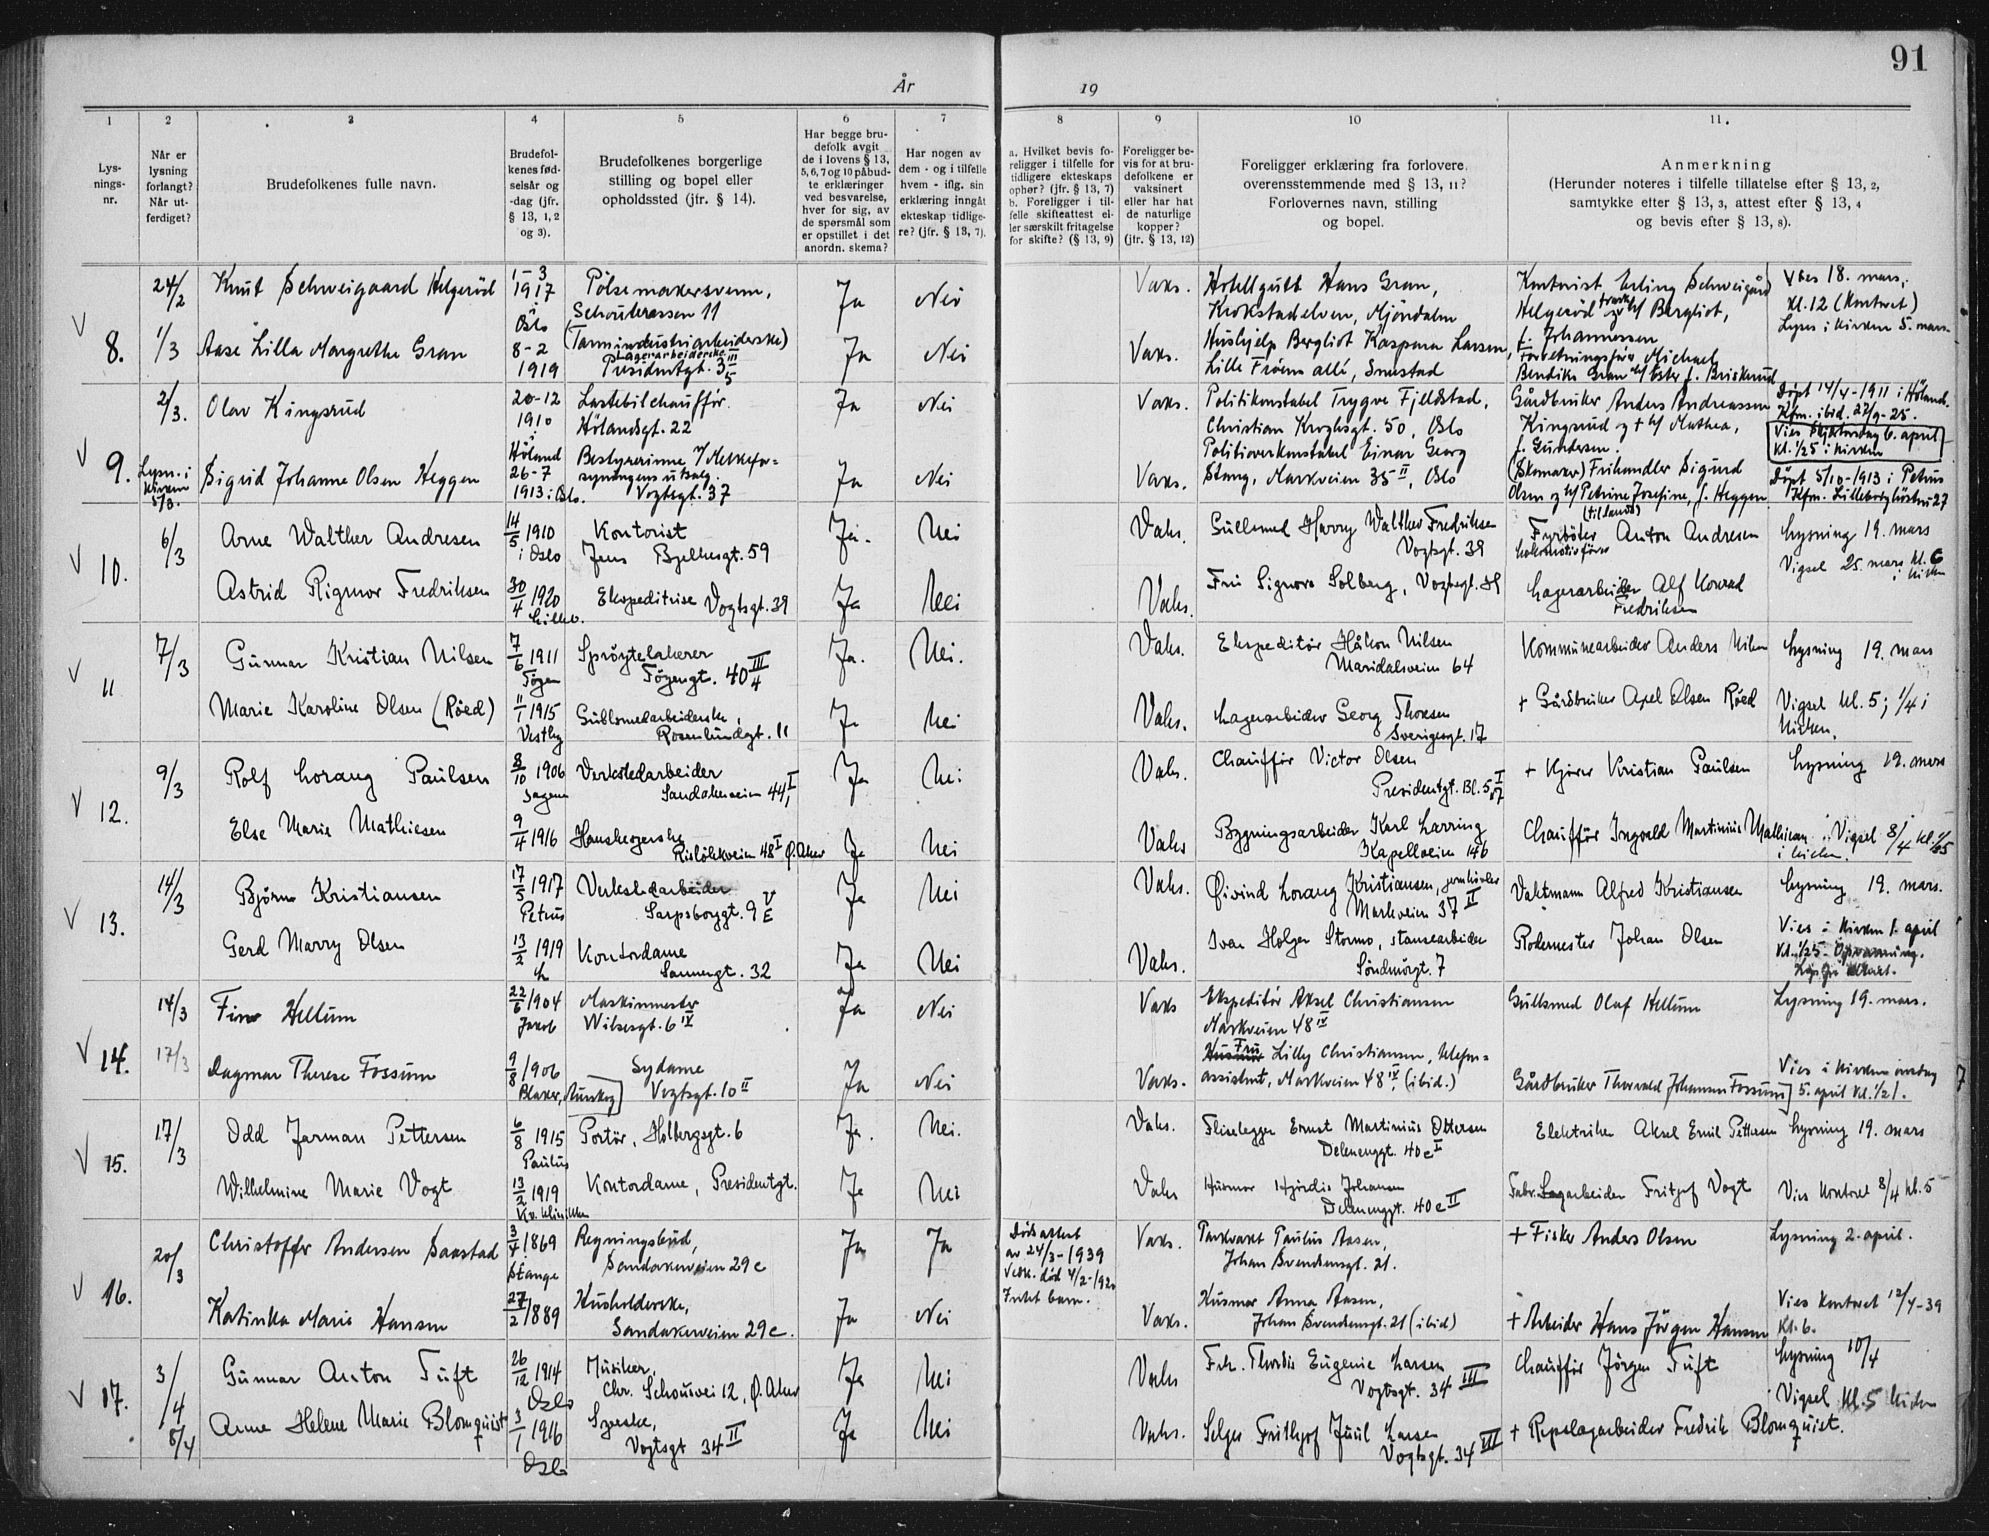 91
År
19
1
2
3
4
5
6
7
8
9
10
11.
Lys-
nings-
nr.
Når er
lysning
forlangt?
Når ut-
ferdiget?
Brudefolkenes fulle navn.
Brudefol-
kenes fød-
selsår og
-dag (jfr.
§ 13, 1, 2
og 3).
Brudefolkenes borgerlige
stilling og bopel eller
opholdssted (jfr. § 14).
Har begge bru-
defolk avgit
de i lovens § 13,
5, 6, 7 og 10 påbud-
te erklæringer
ved besvarelse,
hver for sig, av
de spørsmål som
er opstillet i det
anordn. skema?
Har nogen av
dem - og i tilfelle
hvem - iflg. sin
erklæring inngåt
ekteskap tidlige-
re? (jfr. § 13, 7).
a. Hvilket bevis fo-
religger i tilfelle for
tidligere ekteskaps
ophør? (jfr. § 13, 7)
b. Foreligger i til-
felle skifteattest el-
ler særskilt fritagelse
for skifte? (§ 13, 9)
Foreligger be-
vis for at bru-
defolkene er
vaksinert
eller har hat
de naturlige
kopper?
(jfr. § 13, 12)
Foreligger erklæring fra forlovere,
overensstemmende med § 13, 11?
Forlovernes navn, stilling
og bopel.
Anmerkning
(Herunder noteres i tilfelle tillatelse efter § 13, 2,
samtykke efter § 13, 3, attest efter § 13, 4
og bevis efter § 13, 8).
V 8.
24/2
1/3
Knut Schweigaard Helgerød
1-3
1917
i
Oslo
Pølsemakersvenn,
Schouterassen 11
Ja
Nei
Vaks.
Hotellgutt Hans Gran,
Krokstadelven, Mjöndalen
Kontorist Erling Schweigård
Helgerød og h/ Bergliot,
f. Johannessen
Vies 18. mars,
kl. 12 (Kontoret)
Lyses i kirken 5. mars.
Aase Lilla Margrethe Gran
8-2
1919
(Tannindustriarbeiderske)
Lagerarbeiderske
Presidentgt. 3 III/5
Ja
Nei
Vaks.
Hushjelp Bergliot Kaspara Larsen,
Lille Frøen allé, Smestad
Forretningsfører Michael
Bendiks Gran h/ Ester f. Briskerud
V 9.
2/3.
Lysn. i
kirken
5/3.
Olav Kingsrud
20-12
1910
i
Höland
Lastebilchauffør.
Hölandsgt. 22
Ja
Nei
Vaks.
Politikonstabel Trygve Fjeldstad,
Christian Kroghsgt. 50, Oslo
Gårdbruker Anders Andreassen
Kingsrud og + h/ Mathea,
f. Gundersen.
Döpt 14/4-1911 i Höland.
Kfm. ibid. 27/9-25.
Vies Skjærtorsdag 6. april
kl. 1/25 i kirken
Sigrid Johanne Olsen Heggen
26-7
1913 i Oslo.
Bestyrerinne v/ Melkefor-
syningens utsalg.
Vogtsgt. 37
Ja
Nei
Vaks.
Politioverkonstabel Einar Georg
Stang, Markveien 35 II, Oslo
(Skomaker) Frihandler Sigurd
Olsen og h/ Petrine Josefine, f. Heggen
Döpt 5/10-1913 i Petrus
Kfm. Lilleborg
V 10.
6/3
Arne Walther Andresen
14/5 1910
i Oslo
Kontorist
Jens Bjelkesgt. 59
Ja.
Nei
Vaks.
Gullsmed Harry Walther Fredriksen
Vogtsgt. 39
(tillands)
Fyrböter Anton Andresen
lokomotivfører
Lysning 19. mars
Vigsel 25. mars kl. 6
i kirken
Astrid Rigmor Fredriksen
30/4 1920
Lilleb.
Ekspeditrise Vogtsgt. 39
Ja
Nei
Vaks.
Fru Signora Solberg, Vogtsgt. 39
Lagerarbeider Alf Konrad
Fredriksen
V 11
7/3
Gunnar Kristian Nilsen
7/6 1911
Töyen
Sprøytelakerer
Töyengt. 40 III/4
Ja.
Nei.
Vaks.
Ekspeditör Håkon Nilsen
Maridalsveien 64
Kommunearbeider Anders Nilsen
Lysning 19. mars
Marie Karoline Olsen (Röed)
11/1 1915
Vestby
Gullsmedarbeiderske,
Rosenlundgt. 11
Ja
Nei
Vaks.
Lagerarbeider Georg Thoresen
Sverigesgt. 17
+ Gårdbruker Axel Olsen Röed
Vigsel kl. 5; 1/4 i
kirken.
V 12.
9/3
Rolf Lorang Paulsen
8/10 1906
Sagene
Verkstedarbeider
Sandakerveien 44 I/1
Ja
Nei
Vaks.
Chauffør Victor Olsen
Presidentgt. Bl. 5
+ Kjører Kristian Paulsen
Lysning 19. mars
Else Marie Mathiesen
9/4 1916
Hanskesyerske
Risløkkveien 48 I Ø. Aker
Ja
Nei
Vaks
Bygningsarbeider Karl Larring
Kapellveien 146
Chauffør Ingvald Martinius Mathiesen
Vigsel 8/4 kl. 1/25
i kirken.
V 13.
14/3
Björn Kristiansen
17/5 1917
Petrus
Verkstedarbeider
Sarpsborggt. 9 V/E
Ja
Nei
Vaks.
Øivind Lorang Kristiansen,
Markveien 37 II
Vaktmann Alfred Kristiansen
Lysning 19. mars.
Gerd Marry Olsen
13/2 1919
Kontordame
Sannergt. 32
Ja
Nei
Vaks.
Ivar Holger Stormo, stansearbeider
Söndmörgt. 7
Rodemester Johan Olsen
Vies i kirken 1. april
kl. 1/25
V 14.
14/3
17/3
Finn Hellum
22/6 1904
Jakob
Maskinmester
Wilsesgt. 6 IV
Ja
Nei
Vaks
Ekspeditör Aksel Christiansen
Markveien 48 IV
Gullsmed Olaf Hellum
Lysning 19. mars.
Dagmar Therese Fossum
9/8 1906
Blaker, Aurskog
Sydame
Vogtsgt. 10 II
Ja
Nei
Vaks.
Fru Lilly Christiansen, klefm=
assistent, Markveien 48 IV (ibid.)
Gårdbruker Thorvald Johansen Fossum
Vies i kirken onsdag
5. april kl. 1/21.
V 15.
17/3
Odd Jarman Pettersen
6/8 1915
Paulus
Portör, Holbergsgt. 6
Ja.
Nei.
Vaks.
Fliselegger Ernst Martinius Ottersen
Delenenggt. 40 e I
Elektriker Aksel Emil Pettersen
Lysning 19. mars
Wilhelmine Marie Vogt
13/2 1919
Kv. klinikken
Kontordame, Presidentgt.
Ja
Nei
Vaks
Husmor Hjördis Johansen
Delenenggt. 40 e II
Fabr. Lagarbeider Fritjof Vogt
Vies kontoret 8/4 kl. 5
V 16.
20/3
Christoffer Andersen Saastad
3/4 1869
i
Stange
Regningsbud,
Sandakerveien 29 c
Ja
Ja
Dödsattest
av 24/3-1939
Vedk. död 4/2-192
Intet barn.
Vaks.
Parkvakt Paulus Aasen,
Johan Svendsensgt. 21.
+ Fisker Anders Olsen
Lysning 2. april.
Katinka Marie Hansen
27/2 1889
Husholderske,
Sandakerveien 29 c.
Ja
Nei
Vaks.
Husmor Anna Aasen,
Johan Svendsensgt. 21 (ibid)
+ Arbeider Hans Jörgen Hansen
Vies kontoret 12/4-39
Kl. 6.
V 17.
3/4
8/4
Gunnar Anton Tuft
26/12 1914
Oslo
Musiker,
Chr. Schousvei 12, Ø. Aker
Ja
Nei
Vaks
Frk. Thordis Eugenie Larsen
Vogtsgt. 34 III
Chauffør Jörgen Tuft
Lysning 10/4
Anne Helene Marie Blomquist
3/1 1916
Oslo
Syerske,
Vogtsgt 34 II
Ja
Nei
Vaks.
Selger Frithjof Juul Larsen
Vogtsgt. 34 III
+ Repslagarbeider Fredrik Blomquist.
Vigsel kl. 5 kirken